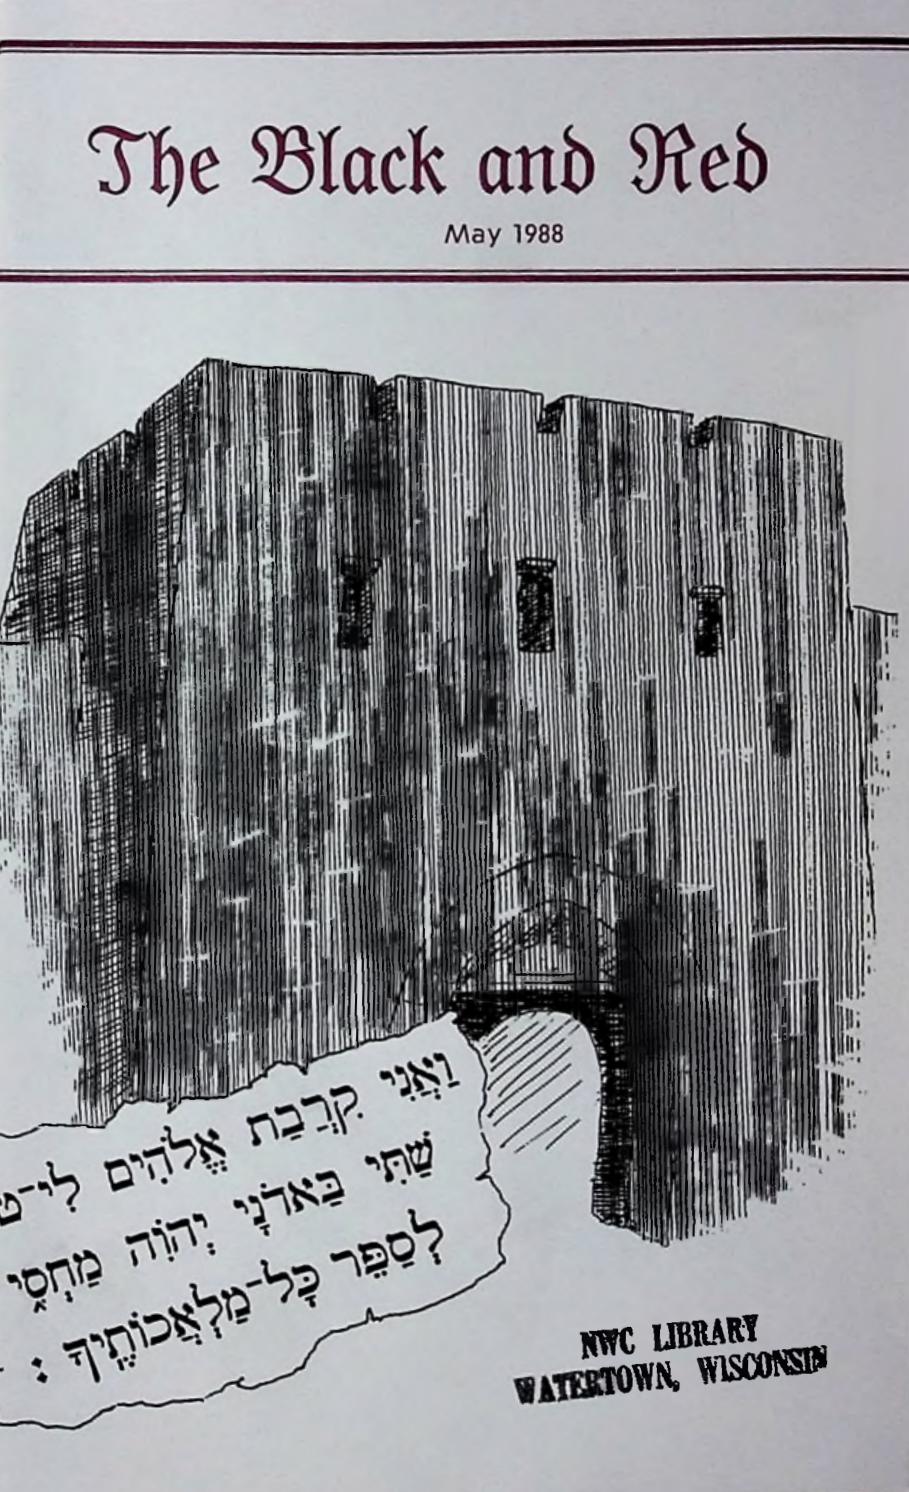 The Black and Red
May 1988
וַאֲנִי קִרֲבַת אֱלֹהִים לִי־ט
שַׁתִּי בַּאדֹנָי יְהוִֹה מַחְסִי
לְסַפֵּר כָּל־מַלְאֲכוֹתֶיךָ :
NWC LIBRARY
WATERTOWN, WISCONSIN